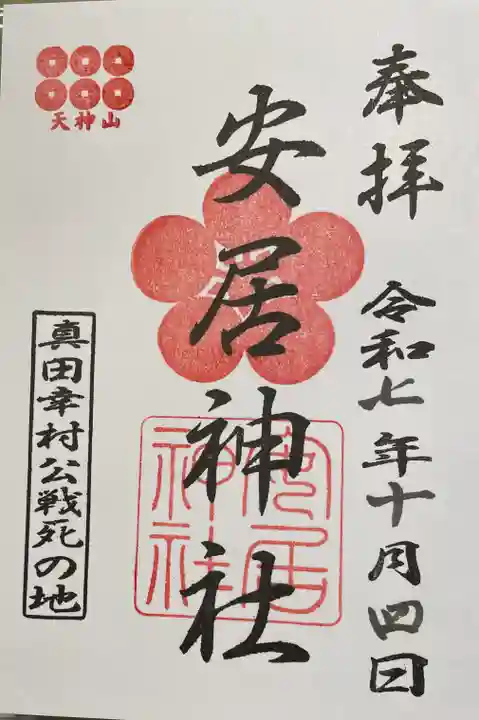 奉拝
令和七年十月四日
安居神社
安居神社
天神山
真田幸村公戦死の地